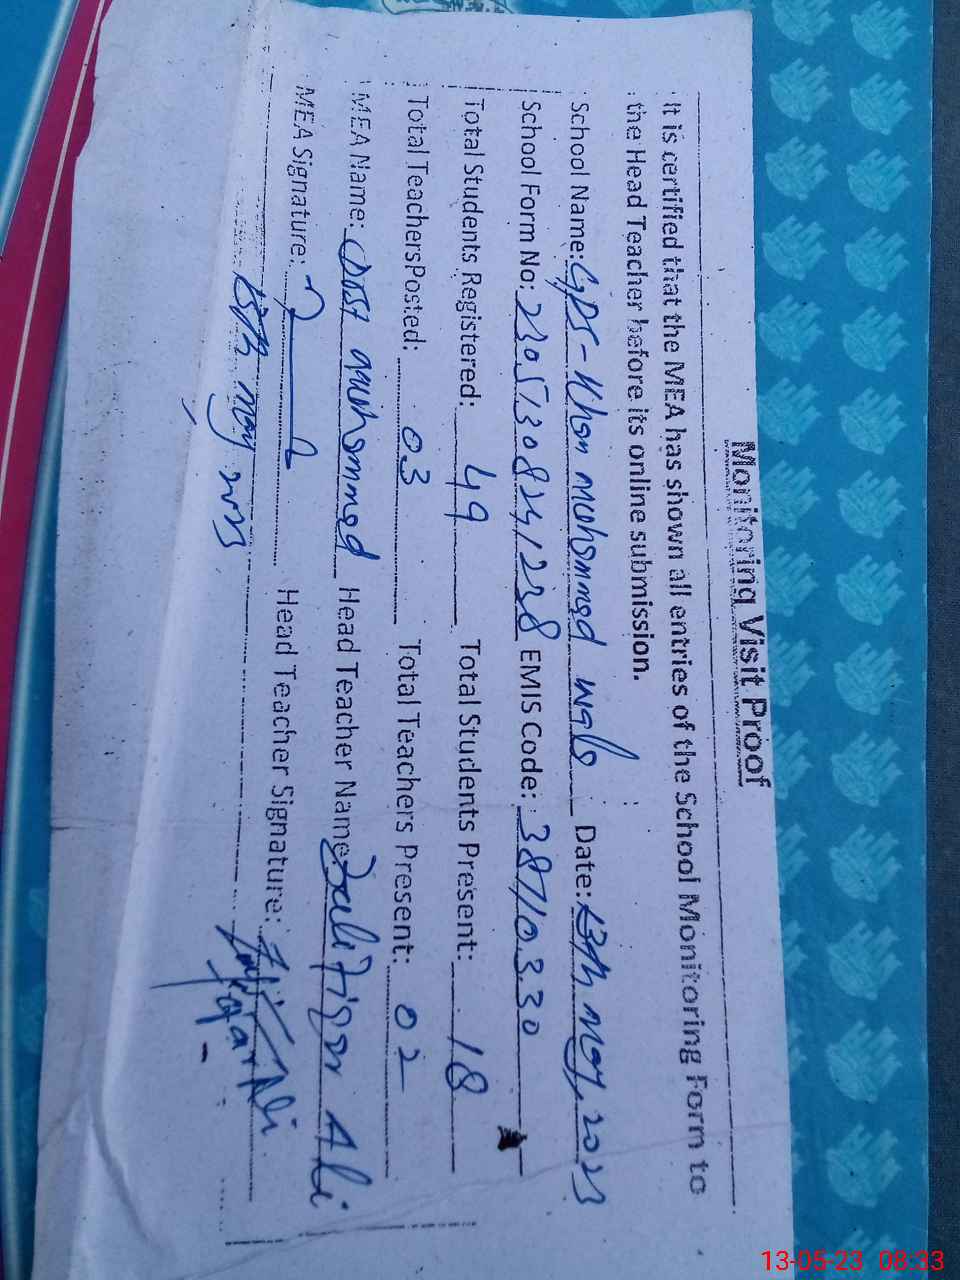 Monitoring Visit Proof
It is certified that the MEA has shown all entries of the School Monitoring Form to
the Head Teacher before its online submission.
School Name: GPS - Khan Mohammad Date: 13th May, 2023
School Form No: 23051308241228 EMIS Code: 38710330
Total Students Registered: 49 Total Students Present: 18
Total TeachersPosted: 03 Total Teachers Present: 02
MEA Name: Dost Mohammad Head Teacher Name: Zulifiqar Ali
MEA Signature: Head Teacher Signature:
13th May 2023
13-05-23 08:33